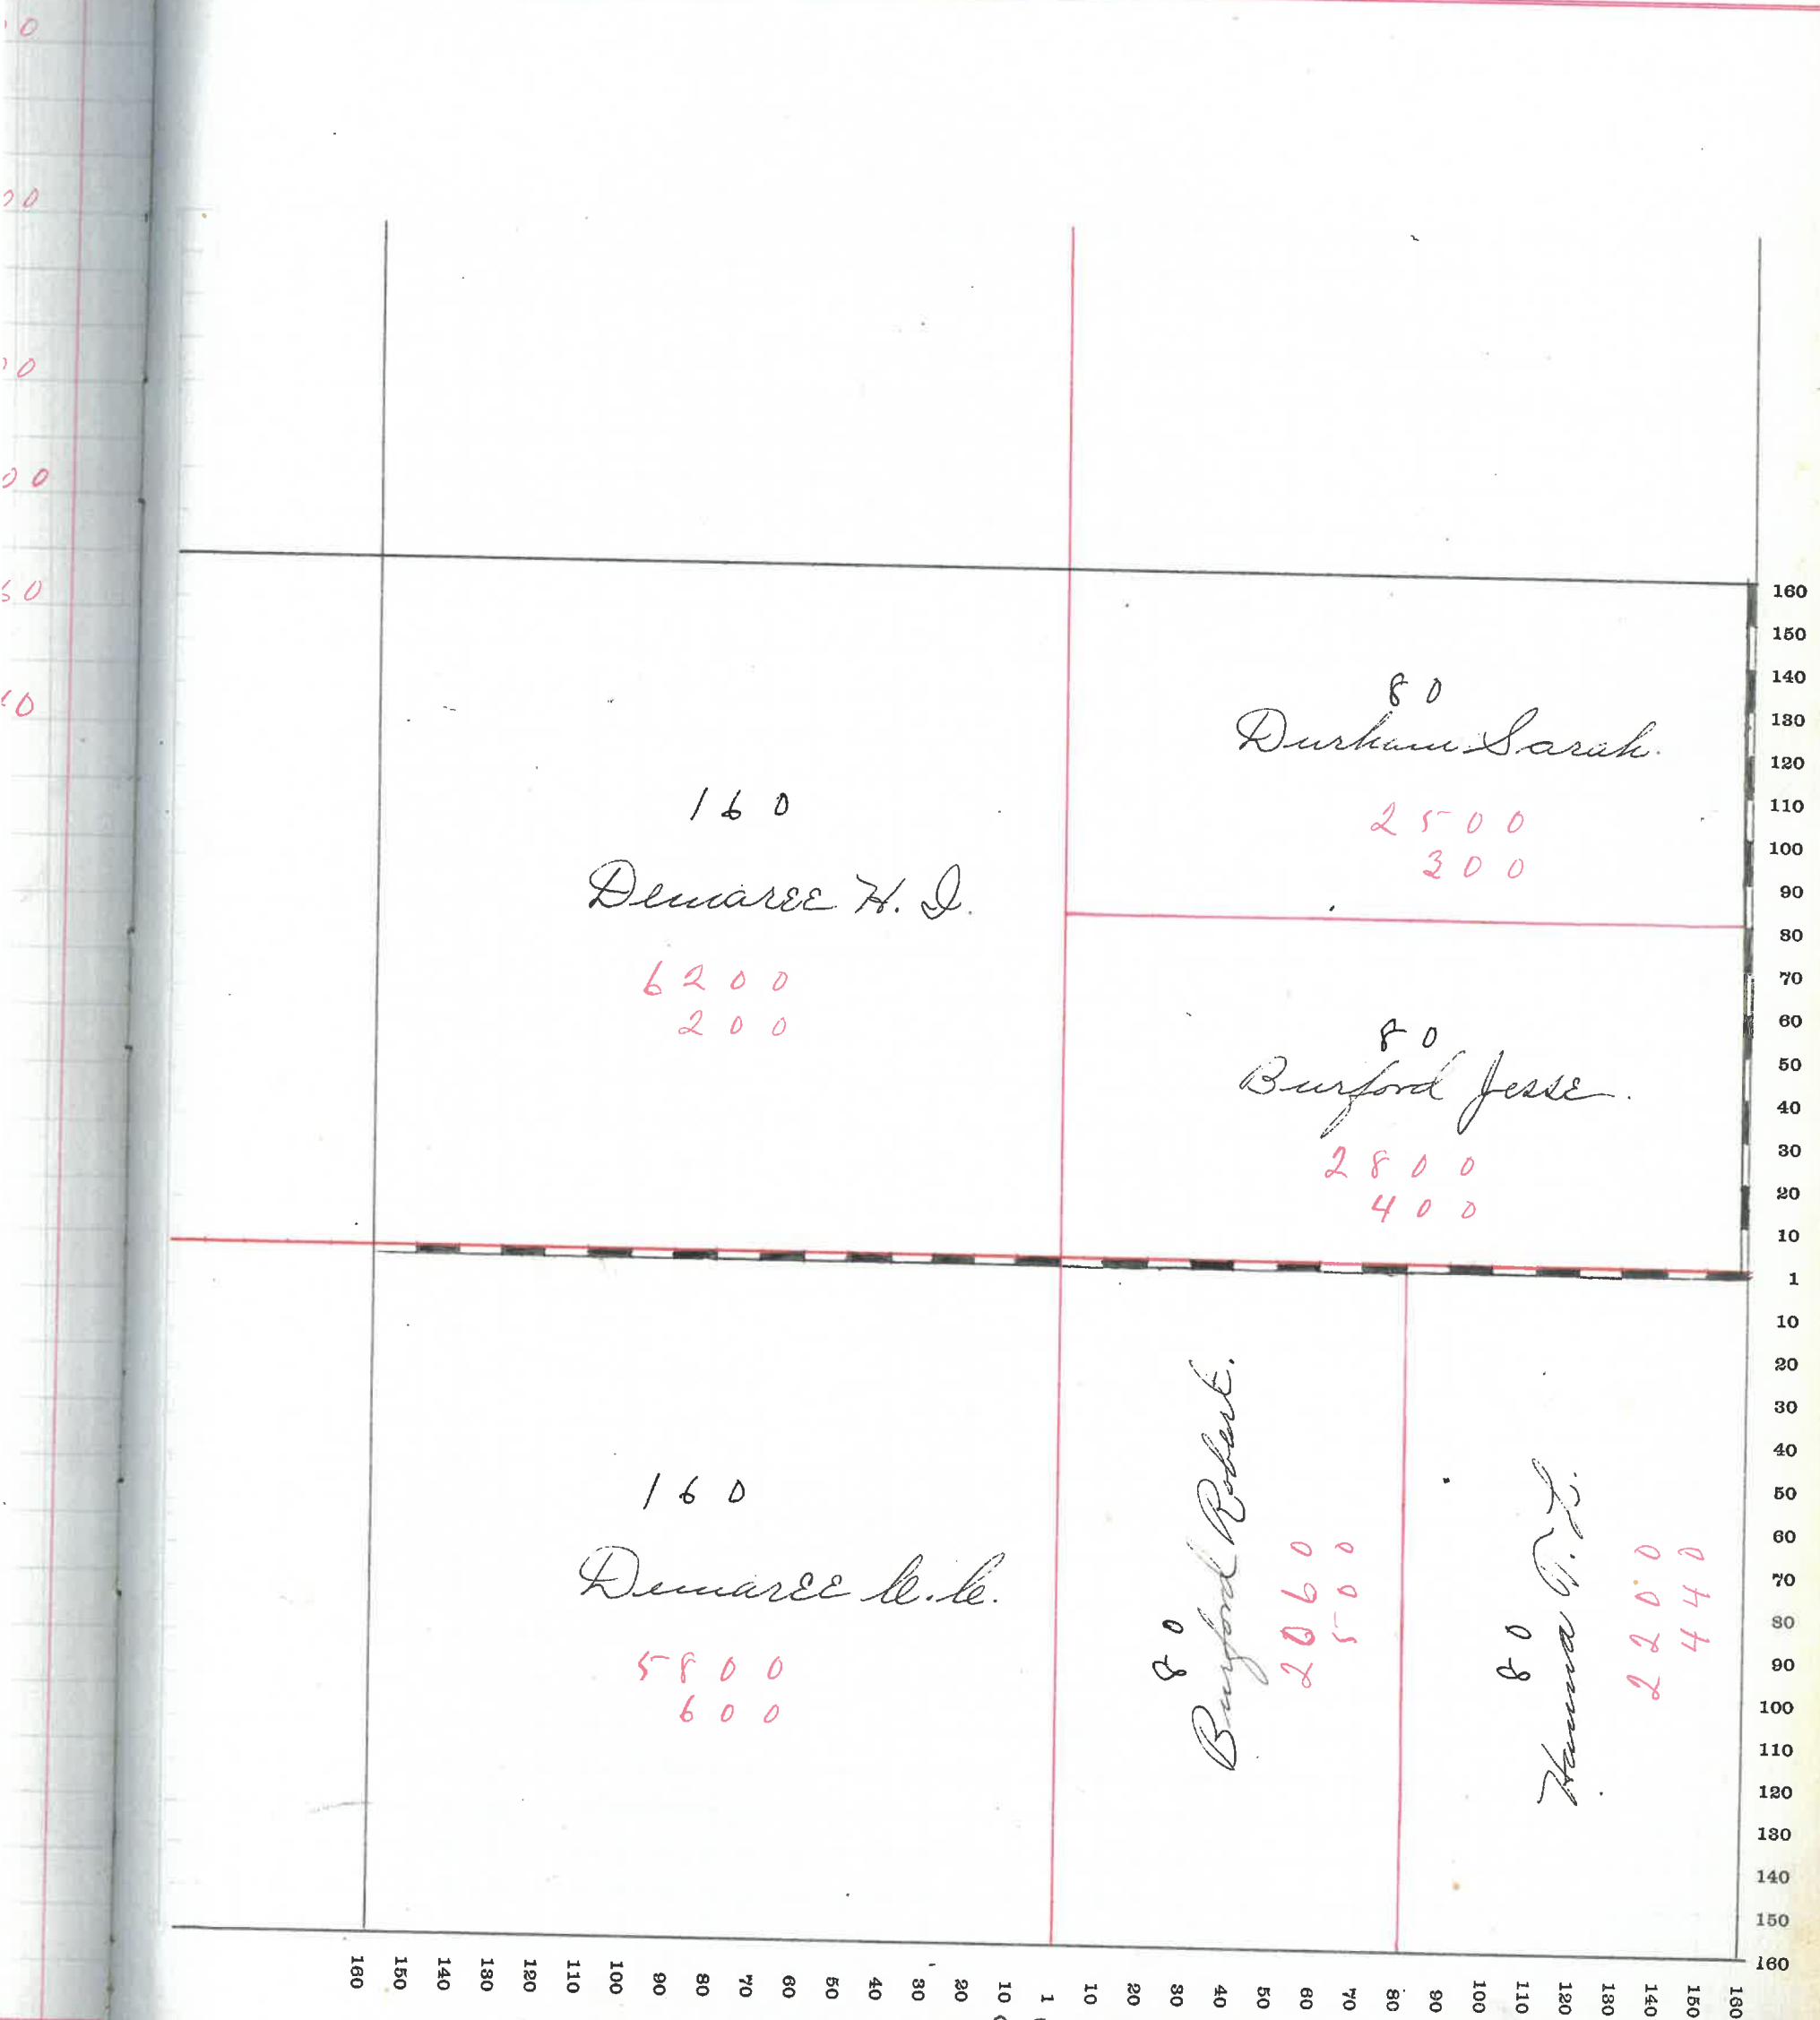 80
Durham Sarah.
2500
300
160
Demaree H. I.
6200
200
80
Burford Jesse.
2800
400
160
Demaree C. C.
5800
600
80
Burford Robert.
2060
500
80
Hanna T. L.
2200
440
160
150
140
130
120
110
100
90
80
70
60
50
40
30
20
10
1
10
20
30
40
50
60
70
80
90
100
110
120
130
140
150
160
160 150 140 130 120 110 100 90 80 70 60 50 40 30 20 10 1 10 20 30 40 50 60 70 80 90 100 110 120 130 140 150 160